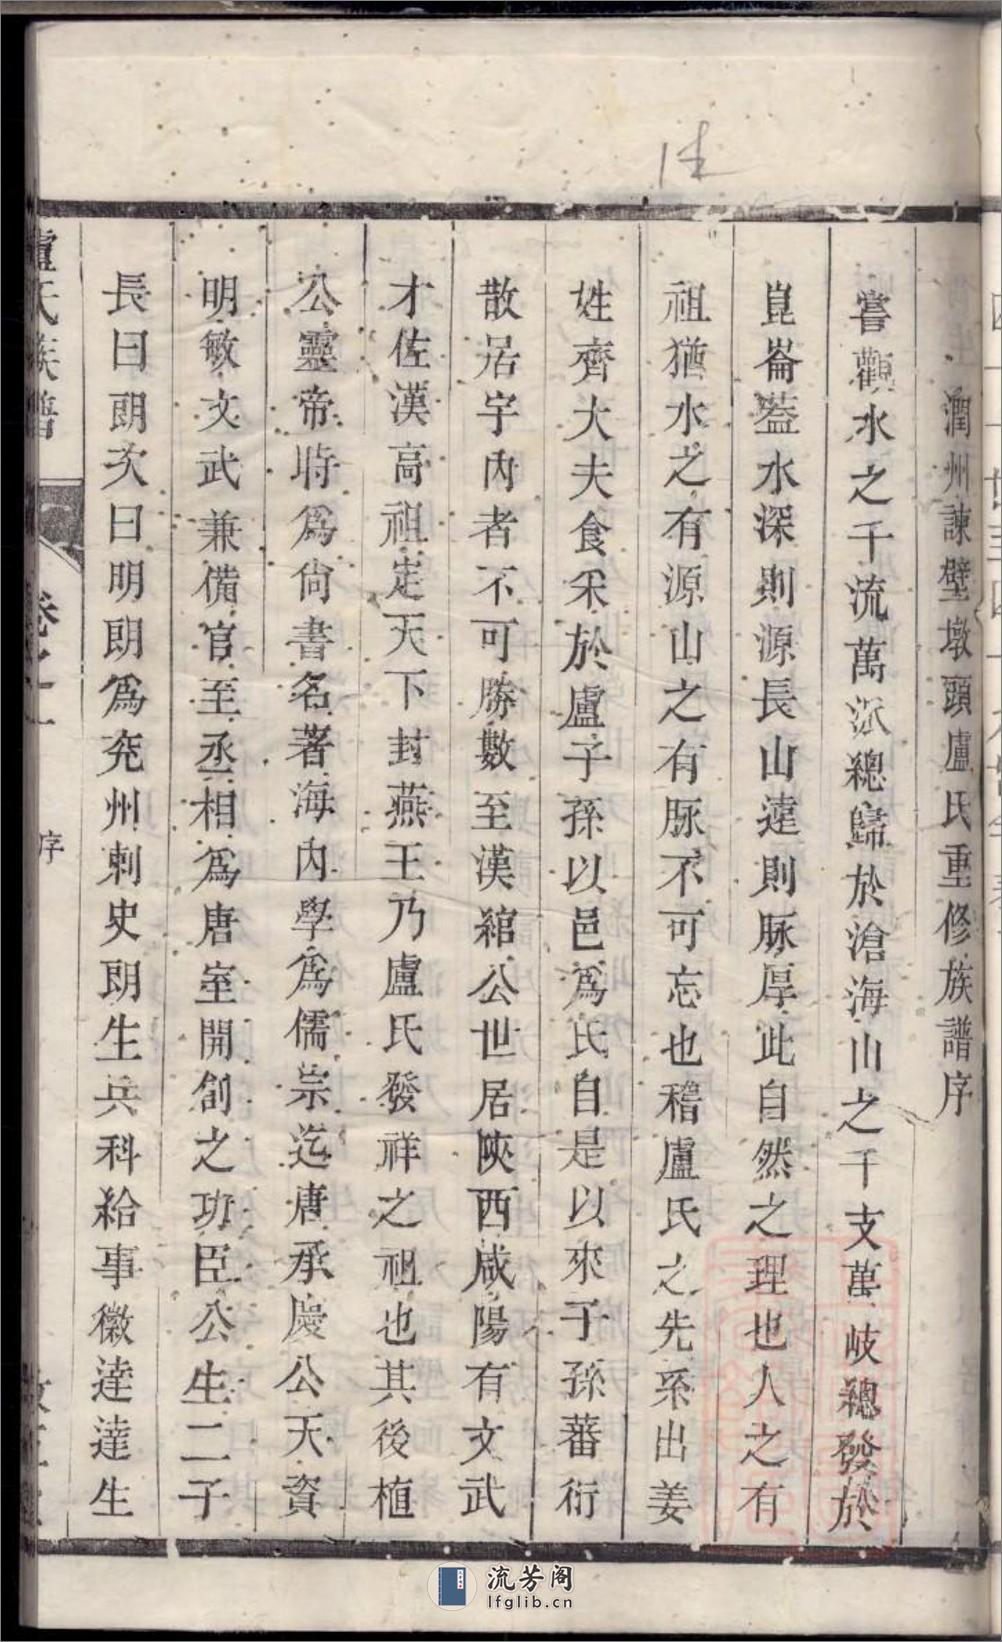 潤州諫壁墩頭盧氏重修族譜序
嘗觀水之千流萬派總歸於滄海山之千支萬岐總發於
崑崙蓋水深則源長山遠則脉厚此自然之理也人之有
祖猶水之有源山之有脉不可忘也稽盧氏之先系出姜
姓齊大夫食采於盧子孫以邑爲氏自是以來子孫蕃衍
散居宇內者不可勝數至漢綰公世居陝西咸陽有文武
才佐漢高祖定天下封燕王乃盧氏發祥之祖也其後植
公靈帝時爲尙書名著海內學爲儒宗迄唐承慶公天資
明敏文武兼備官至丞相爲唐室開創之功臣公生二子
長曰朗次曰明朗爲兖州刺史朗生兵科給事徽達達生
盧氏族譜 卷之一 序
12
流芳阁
lfglib.cn